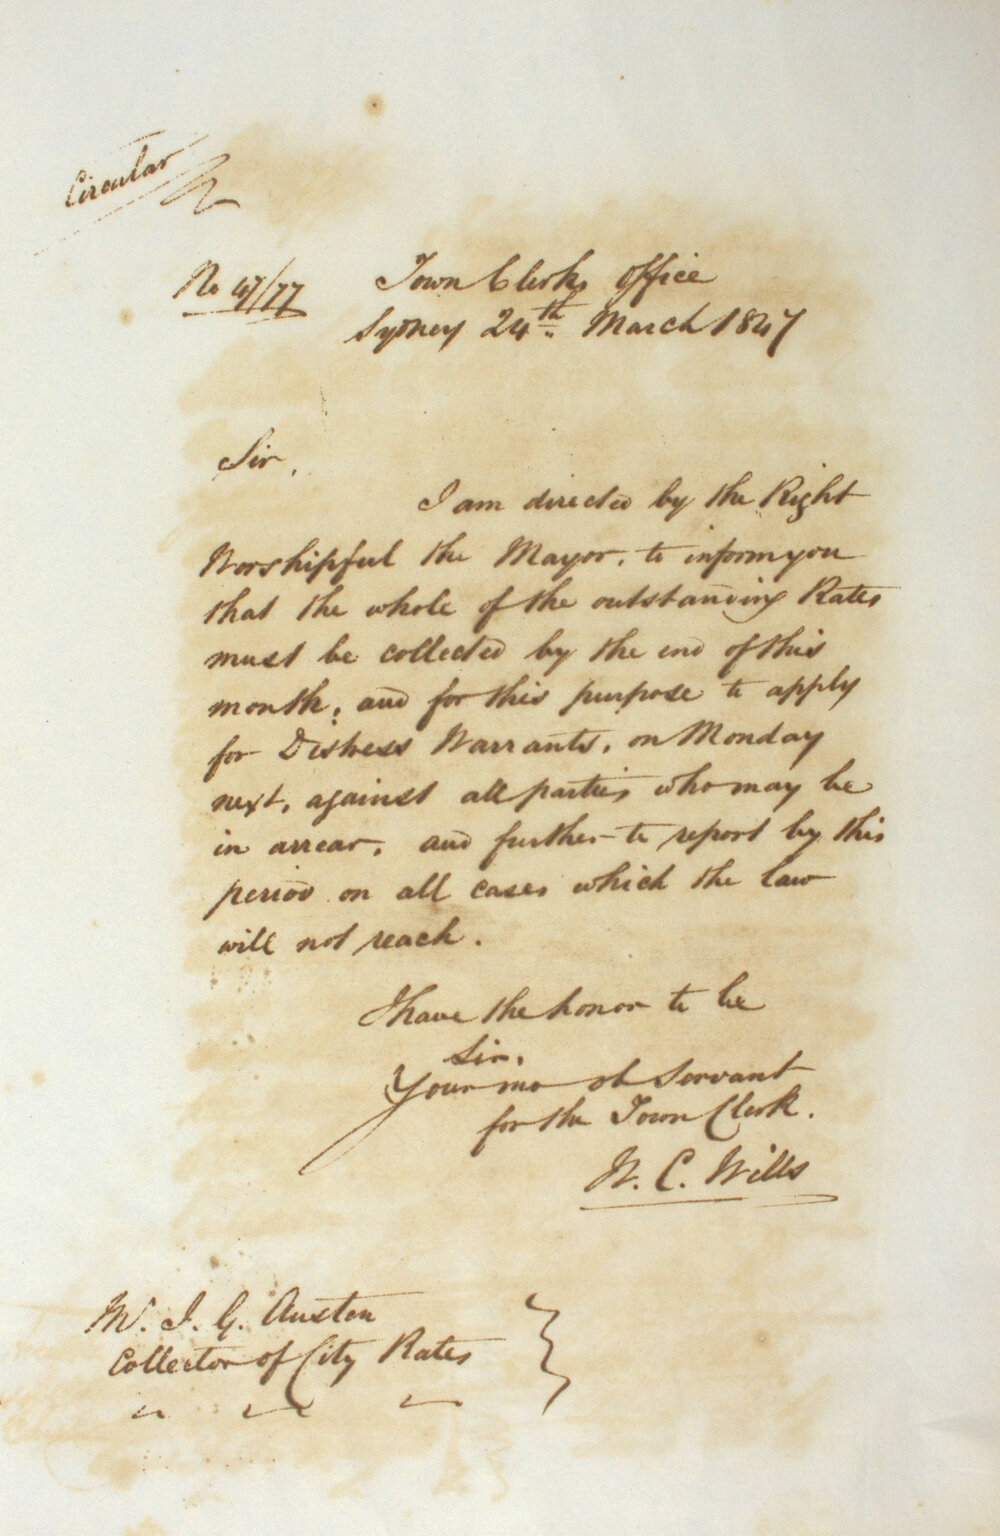 Circular
No 47/77
Town Clerks Office
Sydney 24th March 1847
Sir,
I am directed by the Right
Worshipful the Mayor, to inform you
that the whole of the outstanding Rates
must be collected by the end of this
month, and for this purpose to apply
for Distress Warrants, on Monday
next, against all parties who may be
in arrear, and further to report by this
period on all cases which the law
will not reach.
I have the honor to be
Sir,
Your mo ob Servant
for the Town Clerk.
W. C. Wills
Mr. J. G. Austen
Collector of City Rates